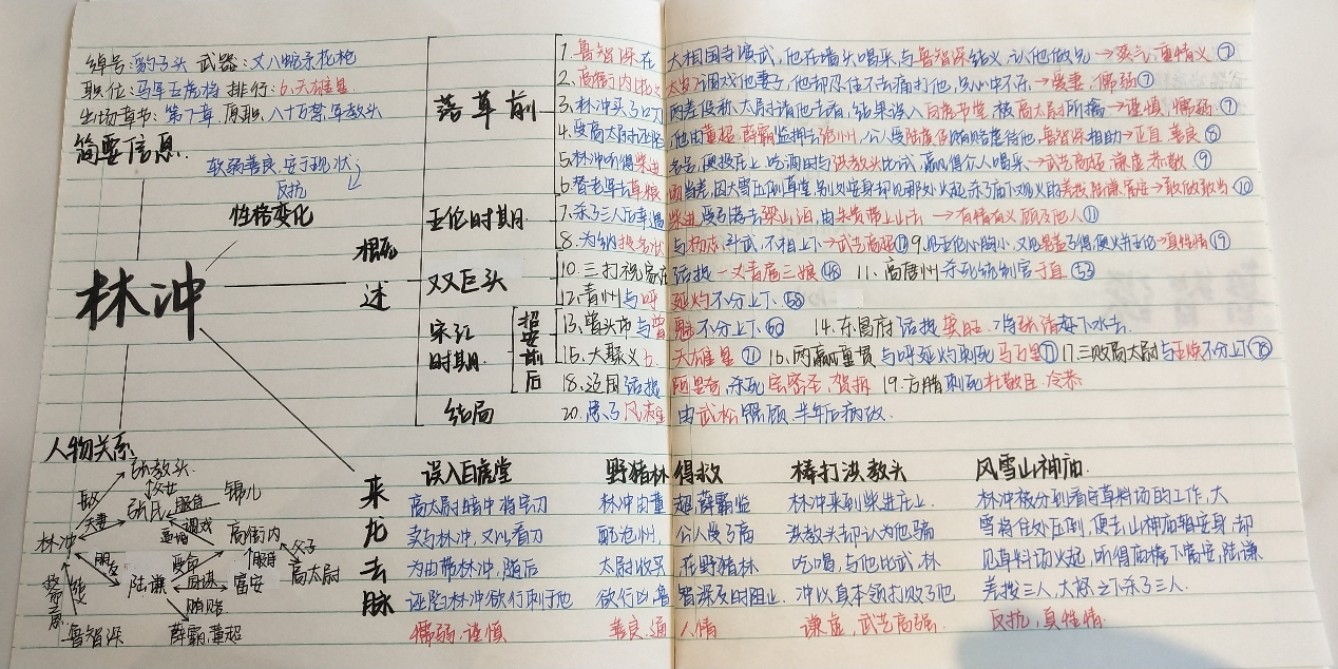 绰号:豹子头 武器:丈八蛇矛花枪
职位:马军五虎将 排行:6.天雄星
出场章节:第7章 原职:八十万禁军教头
简要信息
软弱善良、安于现状
反抗
性格变化
林冲
概
述
落草前
1.鲁智深在大相国寺演武,他在墙头喝采,与鲁智深结义,认他做兄→豪气,重情义⑦
2.高衙内调戏他妻子,他却忍住不去痛打他,只心中不乐→爱妻,懦弱⑦
3.林冲买了口刀,两差役称太尉请他去看,结果误入白虎节堂,被高太尉所擒→谨慎,懦弱⑦
4.受高太尉他由董超 薛霸监押去沧州,公人受陆虞侯贿赂虐待他,鲁智深相助→正直 善良⑧
5.林冲听得柴进名望,便投庄上,吃酒时与洪教头比试,赢得众人喝采→武艺高超 谦虚 恭敬⑨
6.替老军去草料场当差,因大雪压倒草堂,别处安身却见那处火起,杀了庙门观火的差拨,陆谦,富安→敢做敢当⑩
王伦时期
7.杀了三人后幸遇柴进,受引荐去梁山泊,由朱贵带上山去→有情有义 顾及他人⑪
8.为纳投名状与杨志斗武,不相上下→武艺高超 9.见王伦心胸小,又见晁盖了得便火并王伦→真性情⑲
双叉巨头
10.三打祝家庄活捉一丈青扈三娘㊽ 11.高唐州杀死统制官于直
12.青州与呼延灼不分上下
宋江
时期
招安前后
13.曾头市与曾魁不分上下 14.东昌府活捉龚旺,将张清赶下水去.
15.大聚义6.天雄星 16.两赢童贯与呼延灼刺死马万里 17.三败高太尉与王焕不分上下
18.辽国活捉阿里奇,杀死宝密圣,贺拆 19.方腊刺死杜敬臣、冷恭
结局
20.患了风瘫由武松照顾,半年后病故.
人物关系
张教头
父女
张氏
锦儿
服侍
夫妻
林冲
调戏
高衙内
父子
高太尉
朋友
陆谦
受命
富安
贿赂
薛霸,董超
鲁智深
来
龙
去
脉
误入白虎堂
高太尉暗中将宝刀
卖与林冲,又以看刀
为由带林冲,随后
诬陷林冲欲行刺于他
懦弱,谨慎
野猪林得救
林冲由董超,薛霸监
配沧州,公人受了高
太尉收买,在野猪林
欲行凶,鲁智深及时阻止.
善良,通人情
棒打洪教头
林冲来到柴进庄上,
洪教头却认为他骗
吃喝,与他比武,林
冲以真本领打败了他
谦虚,武艺高强.
风雪山神庙.
林冲被分到看守草料场的工作,大
雪将住处压倒,便去山神庙暂安身,却
见草料场火起,听得庙檐下富安,陆谦
差拨三人,大怒之下杀了三人.
反抗,真性情.